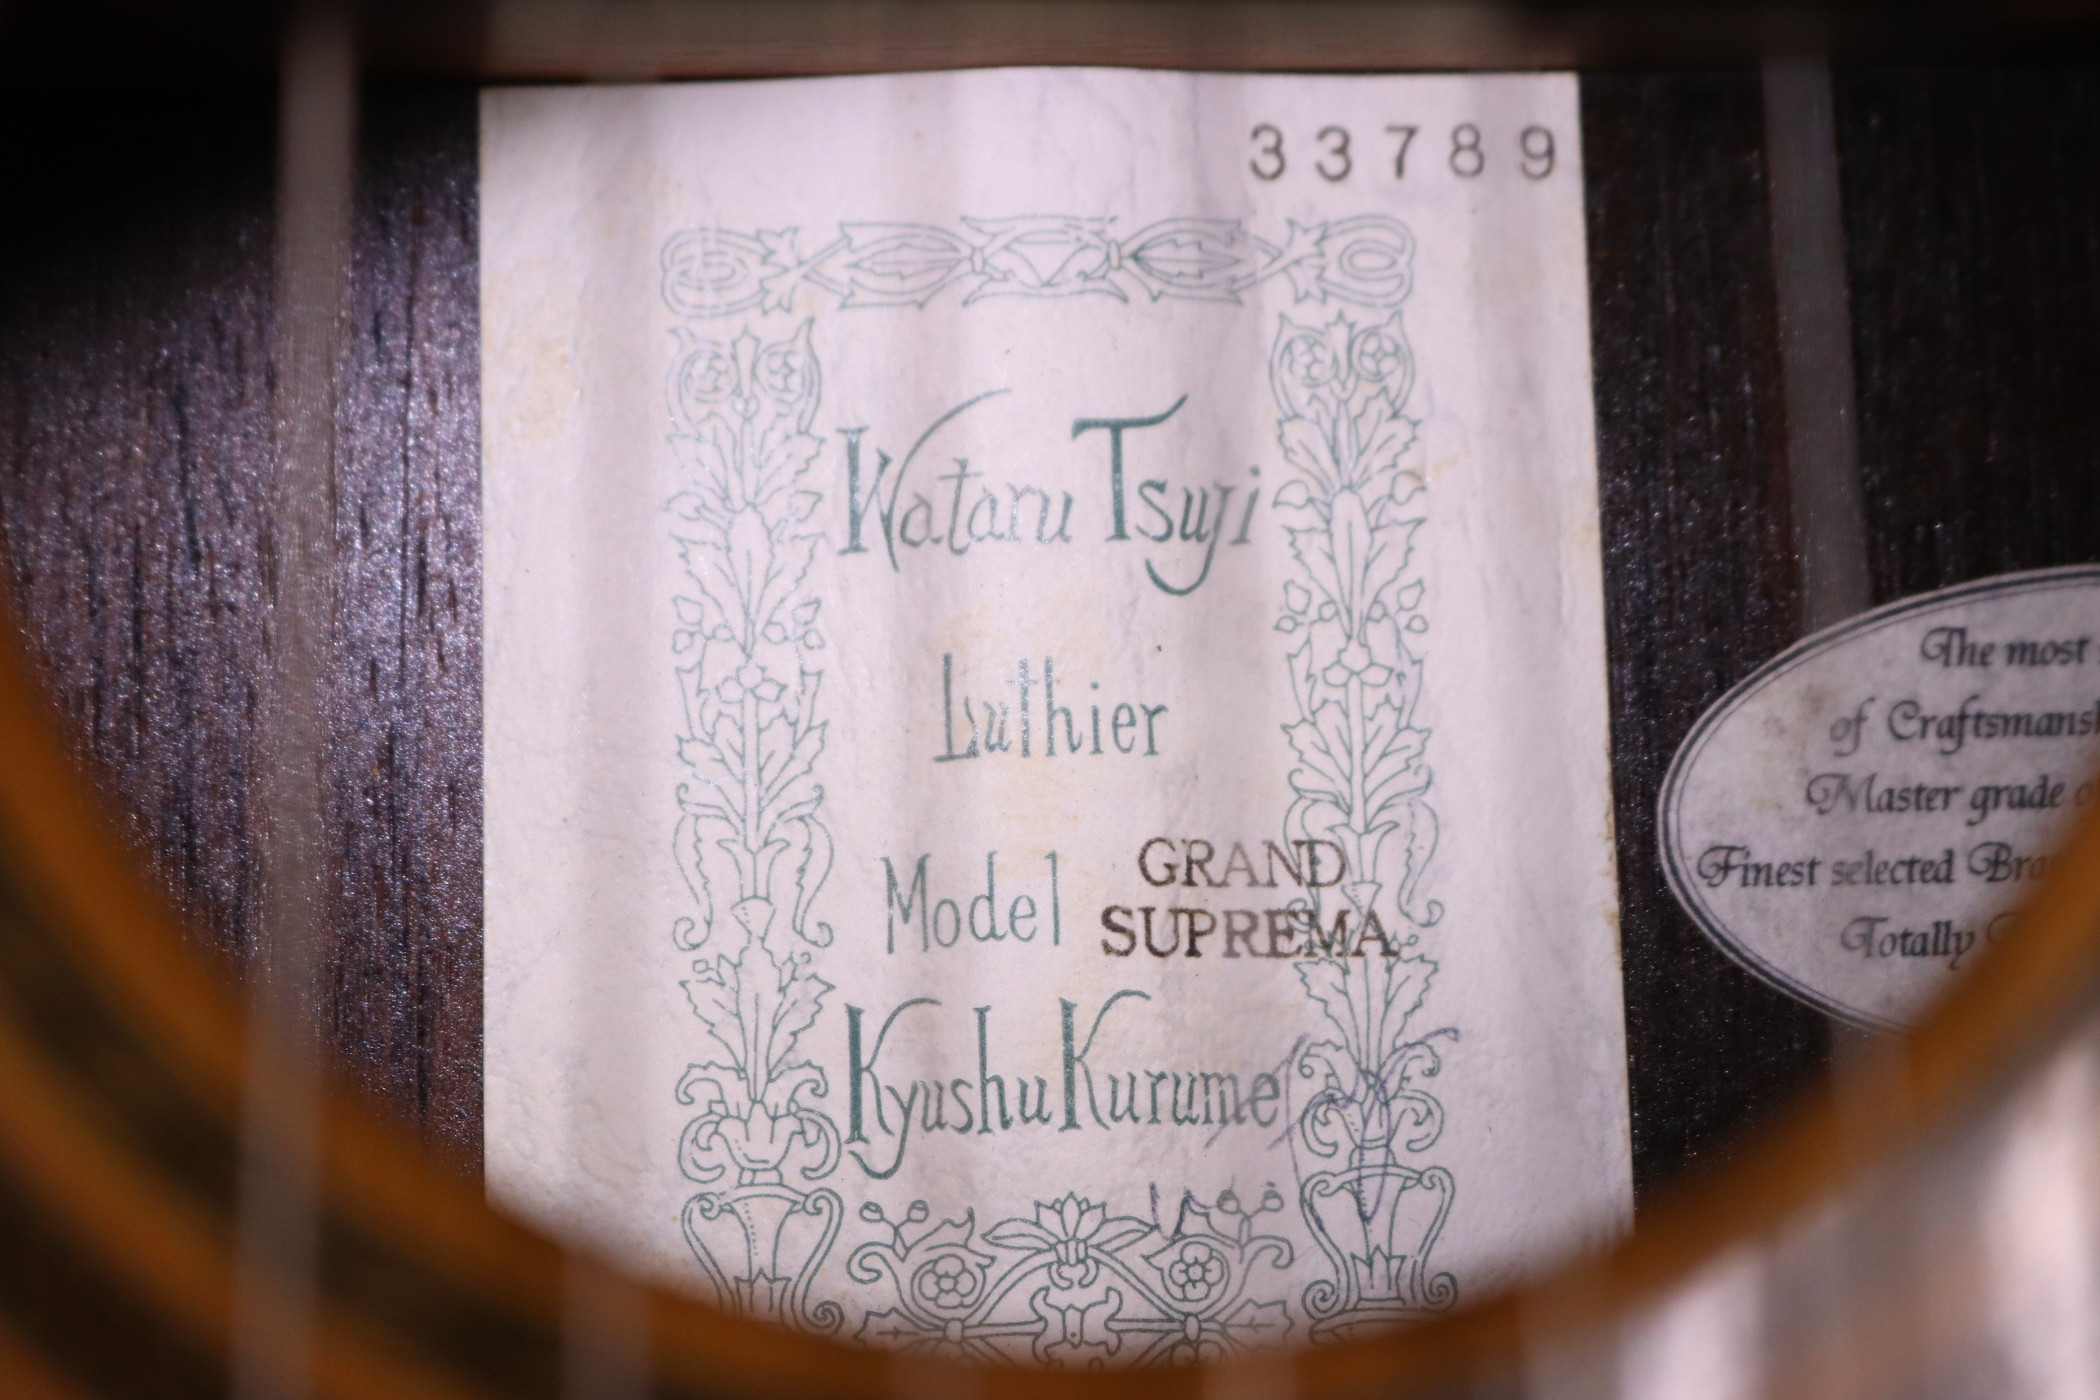 33789
Wataru Tsuji
Luthier
Model GRAND
SUPREMA
Kyushu Kurume
The most
of Craftsmans
Master grade
Finest selected Bra
Totally